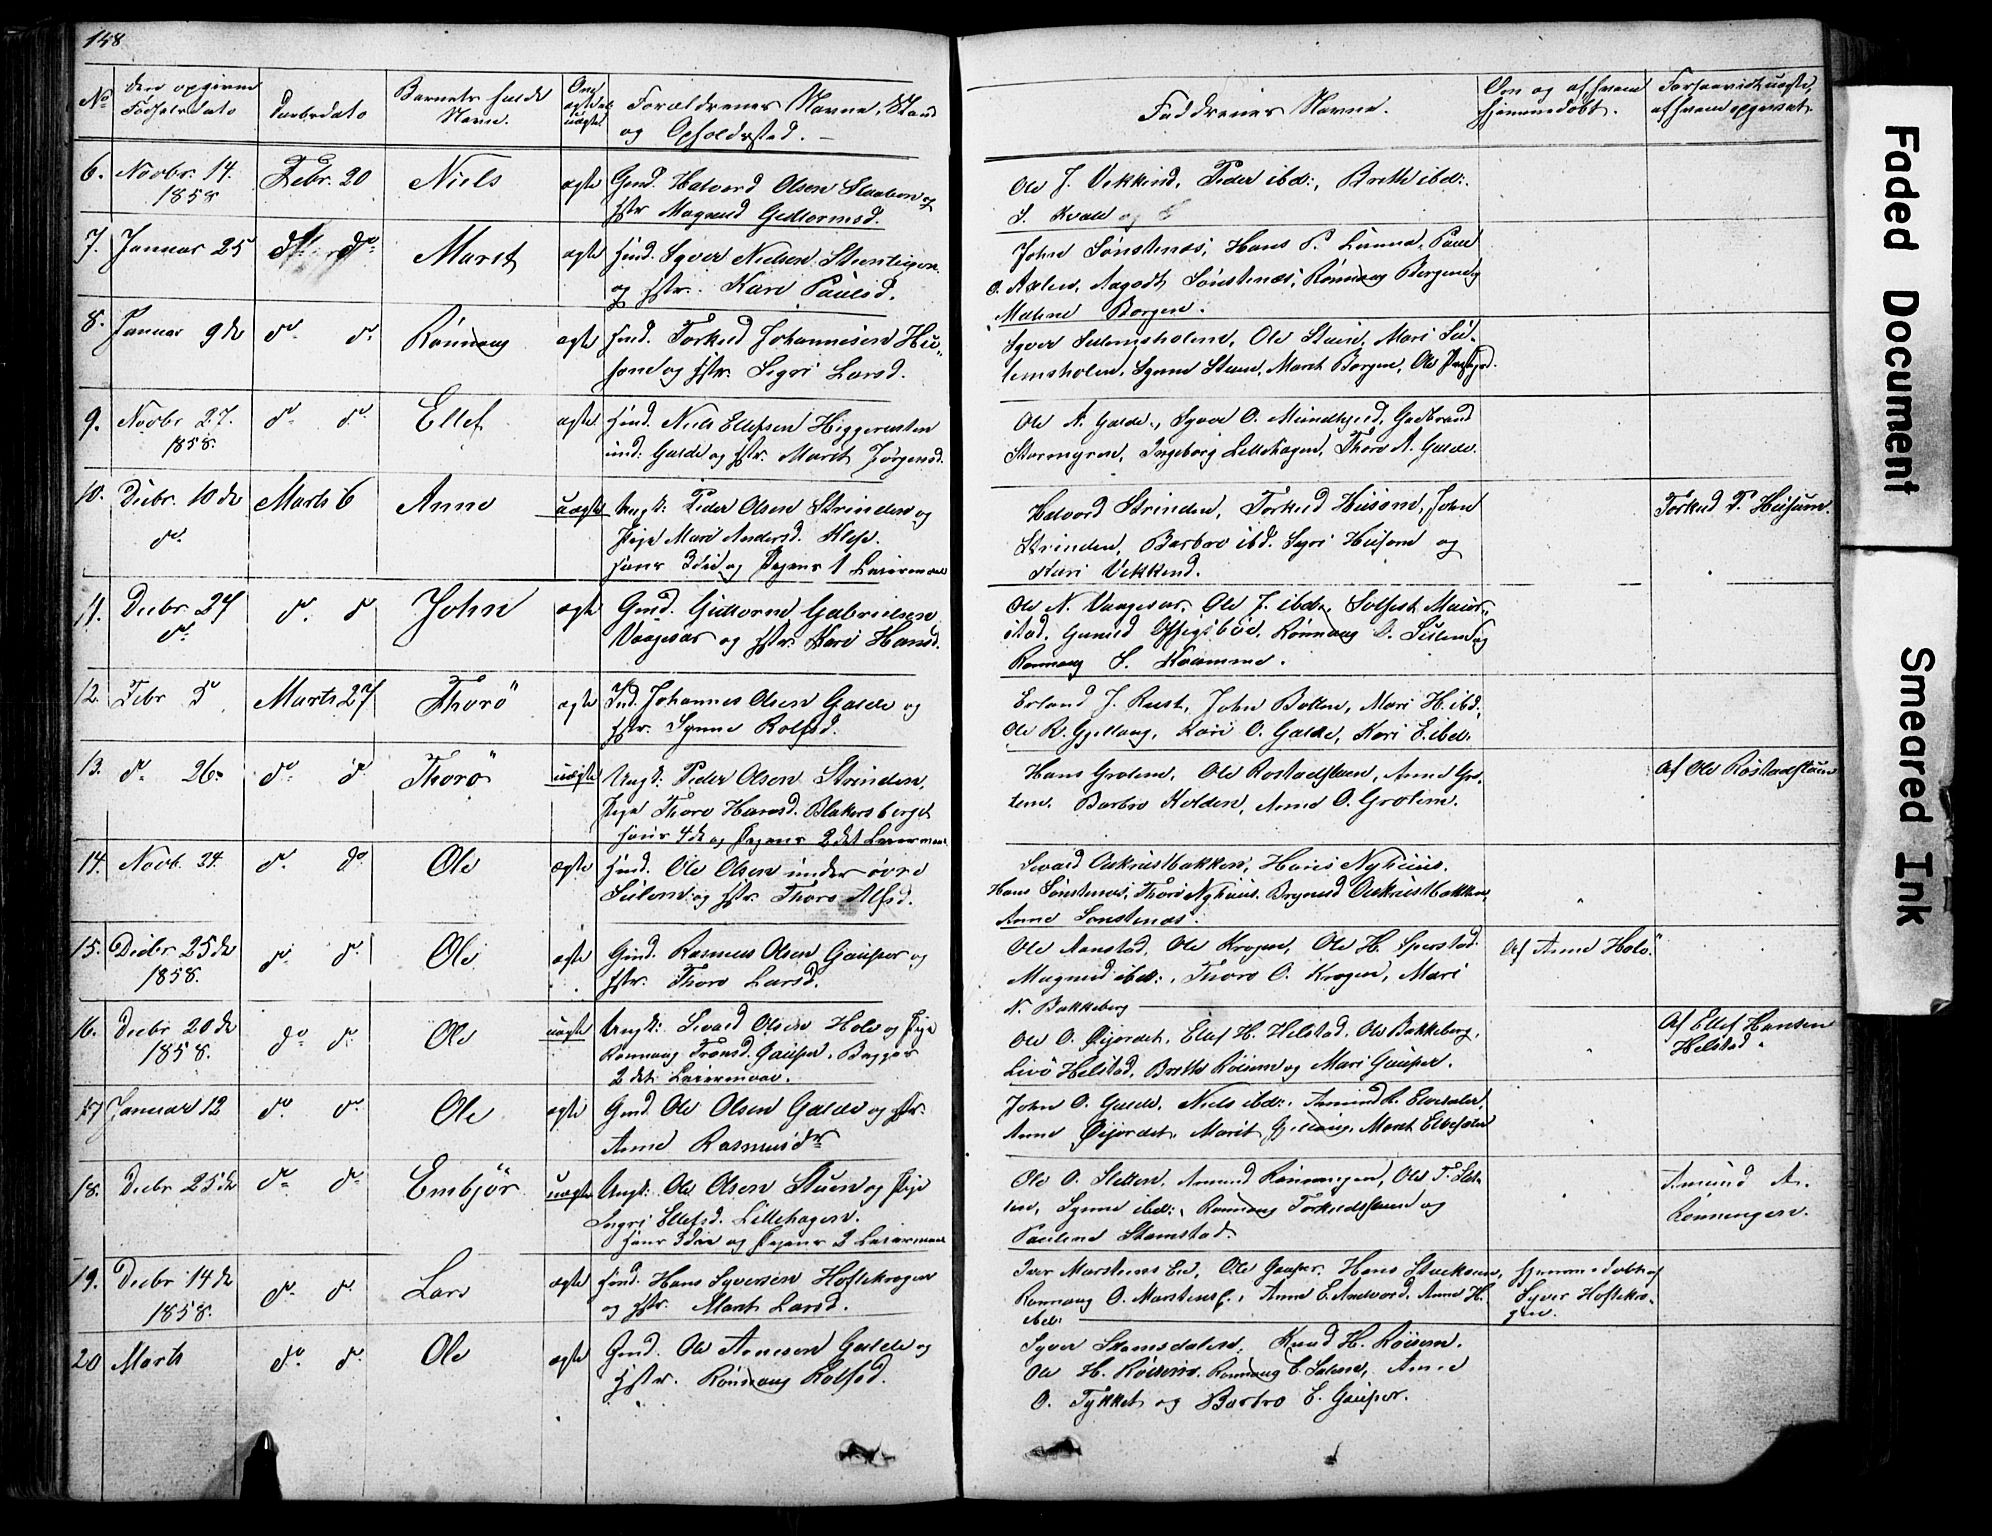 148
No
Den opgivne
Fødselsdato
Daabsdato
Barnets fulde
Navn.
Om
ægte el.
uægte
Forældrenes Navne, Stand
og Opholdssted. —
Faddrenes Navne.
Om og af hvem
hjemmedøbt.
af hvem opgivet
6. Novbr. 14.
1858
Febr. 20
Niels
ægte
Gmd. Halvord Olsen
Hstr. Magnild Guttormsd.
Ole J. Vekkend, Peder ibd:, Brithe ibd:.
S. Kvale og
7. Januar 25
do
Marit
ægte
Hmd. Syver Nielsen
og Hstr. Kari Paulsd.
John Sønstenæs, Hans P. Linna, Paul
O. Aslen, Aagodt Sønstenæs, Rønnaug Bergene
Malene Borgen.
8. Januar 9de
do do
Rønnaug
ægte
Hmd. Torkild Johannesen Hu-
som og Hstr. Sigri Larsd.
Syver Sulemsholen, Ole Stuen, Mari Su-
lemsholen, Synne Stuen, Marit Borgen, Ole
9. Novbr 27.
1858.
do do
Ellef
ægte
Hmd. Niels Ellefsen Higgerusten
und: Galde og Hstr. Marit Jørgensd.
Ole A. Galde, Syver O. Mundhjeld, Gudbrand
Storengen, Ingeborg Lillehagen, Thora A. Galde.
10. Decbr. 10de
do
Marts 6
Anne
uægte
Ungk: Peder Olsen Strinden og
Pige Mari Andersd. Klype.
hans 3die og Pigens 1 Leiermaal
Halvord Strinden, Torkild Husom, John
Strinden, Barbro ibd. Syri Husom og
Kari Vekkend.
Torkild T. Husum.
11. Decbr. 27
do
do do
John
ægte
Gmd. Guttorm Gabrielsen
Vaagesar og Hstr. Kari Hansd.
Ole N. Vaagesar, Ole J. ibd:, Solfest Maur-
stad, Gunild Offigsbøe, Rønnaug O. Sulem og
Rønnaug S. Kvamme.
12. Febr 5
Marts 27
Thorø
ægte
Ind. Johannes Olsen Galde og
Hstr. Synne Rolfsd.
Erland J. Rust, John Botten, Mari H. ibd:
Ole R. Gjellang, Kari O. Galde, Kari E. ibd:
13. do 26
do do
Thorø
uægte
Ungk: Peder Olsen Strinden,
Pige Thora Hansd. Blakersberget
hans 4de og Pigens 2det Leiermaal
Hans Grotem, Ole Rostadstuen, Anne Gro-
tem. Barbro Kolden, Anne O. Grotem.
Af Ole Rostadstuen
14. Novb. 24.
do do
Ole
ægte
Hmd. Ole Olsen under øvre
Sulem og Hstr. Thora Alfsd.
Sevald Aukrustbakken, Hans Nyhuus.
Hans Sønstenes, Thora Nyhuus. Brynild Aukrustbakken,
Anne Sønstenæs.
15. Decbr 25de
1858.
do do
Ole
ægte
Gmd. Rasmus Olsen Gauper og
Hstr. Thora Larsd.
Ole Aanstad, Ole Krogen, Ole H. Sperstad.
Magnild ibd:, Thora O. Krogen, Mari
N. Bakkeberg
Af Anne Holø
16. Decbr 20de
1858.
do do
Ole
uægte
Ungk: Sevald Olsen Hole og Pige
Rønnaug Tronsd. Gauper, Begges
2det Leiermaal.
Ole O. Øijordet, Ellef H. Helstad. Ole Bakkeberg,
Livø Helstad, Brithe Røisem og Mari Gauper.
Af Ellef Hansen
Helstad.
17 Januar 12
do do
Ole
ægte
Gmd. Ole Olsen Galde og Hstr.
Anne Rasmusdr
John O. Galde, Niels ibd:, Amund A. Elvesæter,
Anne Øijordet, Marit Gjellang, Marit Elvesæter
18. Decbr 25de
do do
Embjør
uægte
Ungk: Ole Olsen Stuen og Pige
Ingri Ellefsd. Lillehagen.
hans 3die og Pigens 2 Leiermaal
Ole O. Sletten, Amund Rønningen, Ole T. Slet-
ten, Synne ibd:, Rønnaug Torkildstuen og
Pauline Stamstad.
Amund A.
Rønningen.
19. Decbr 14de
1858.
do do
Lars
ægte
Hmd. Hans Syversen Hoftekrogen
og Hstr. Marit Larsd.
Iver Marstens Eie, Ole Gauper. Hans
Rønnaug O. Marstens E., Anne E. Andvord, Anne H.
ibd:
Hjemmedøbt af
Syver Hoftekro-
gen.
20 Marts
do do
Ole
ægte
Gmd. Ole Arnesen Galde og
Hstr. Rønnaug Rolfsd.
Syver Stamsdalen, Knud H. Røisem.
Ole H. Røisem. Rønnaug E. Sulem, Anne
O. Tykket og Barbro E. Gauper.
Faded Document
Smeared Ink